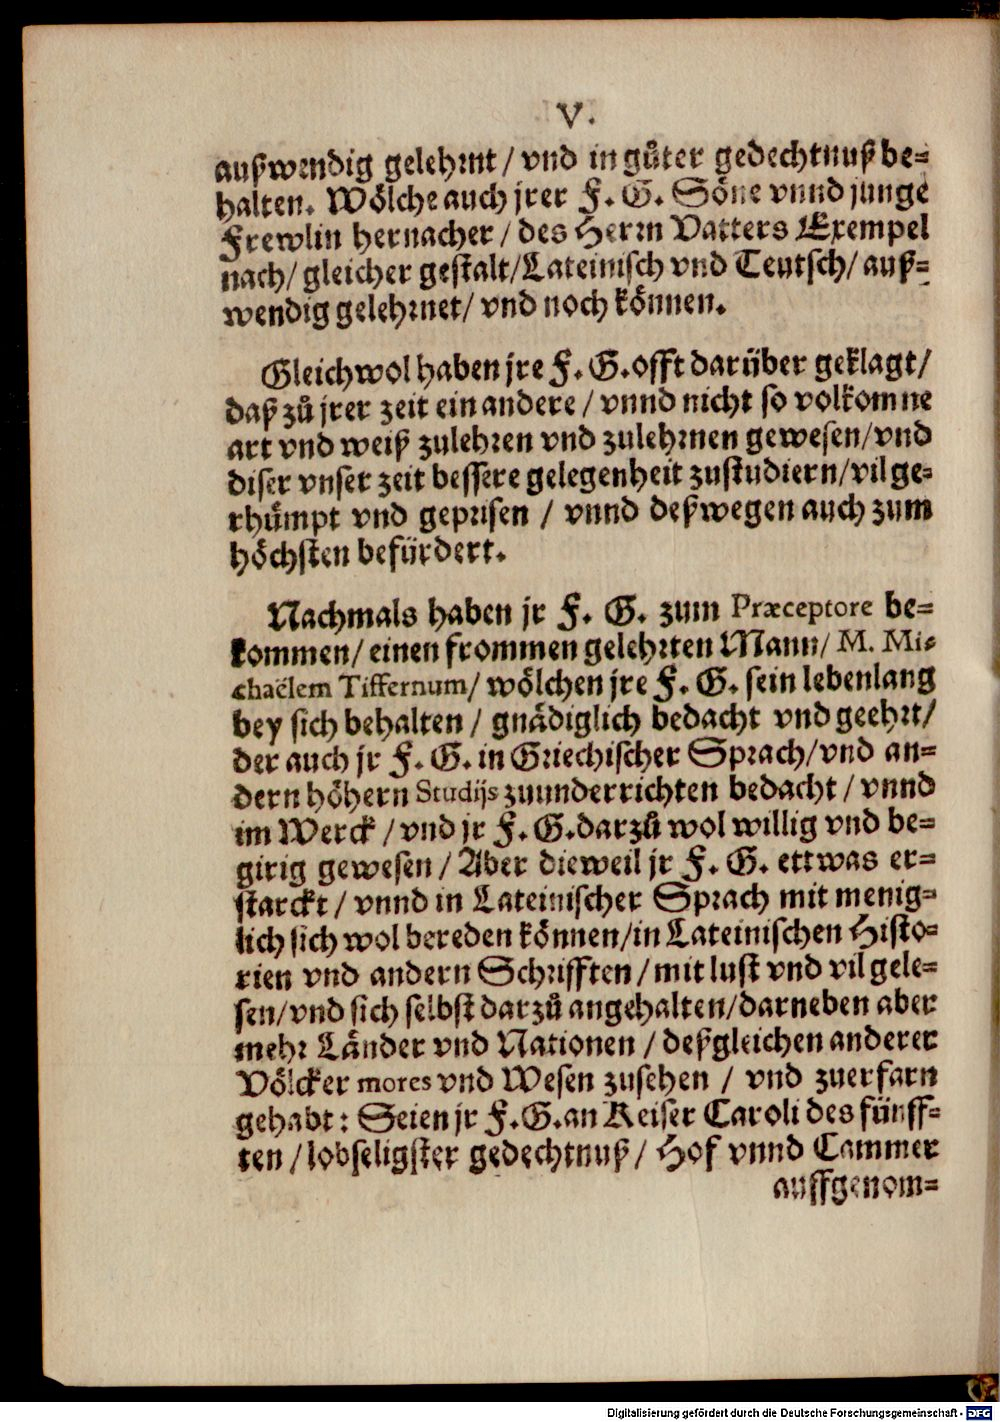 V.
außwendig gelehrnt / vnd in gůter gedechtnuß be-
halten. Wölche auch jrer F. G. Söne vnnd junge
Frewlin hernacher / des Herrn Vatters Exempel
nach / gleicher gestalt / Lateinisch vnd Teutsch / auß-
wendig gelehrnet / vnd noch können.
Gleichwol haben jre F. G. offt darüber geklagt /
daß zů jrer zeit ein andere / vnnd nicht so volkomne
art vnd weiß zulehren vnd zulehrnen gewesen / vnd
diser vnser zeit bessere gelegenheit zustudiern / vil ge-
rhümpt vnd geprisen / vnnd deßwegen auch zum
höchsten befürdert.
Nachmals haben jr F. G. zum Præceptore be-
kommen / einen frommen gelehrten Mann / M. Mi-
chaëlem Tiffernum / wölchen jre F. G. sein lebenlang
bey sich behalten / gnädiglich bedacht vnd geehrt /
der auch jr F. G. in Griechischer Sprach / vnd an-
dern höhern Studijs zuunderrichten bedacht / vnnd
im Werck / vnd jr F. G. darzů wol willig vnd be-
girig gewesen / Aber dieweil jr F. G. ettwas er-
starckt / vnnd in Lateinischer Sprach mit menig-
lich sich wol bereden können / in Lateinischen Histo-
rien vnd andern Schrifften / mit lust vnd vil gele-
sen / vnd sich selbst darzů angehalten / darneben aber
mehr Länder vnd Nationen / deßgleichen anderer
Völcker mores vnd Wesen zusehen / vnd zuerfarn
gehabt : Seien jr F. G. an Keiser Caroli des fünff-
ten / lobseligster gedechtnuß / Hof vnnd Cammer
auffgenom-
Digitalisierung gefördert durch die Deutsche Forschungsgemeinschaft - DFG